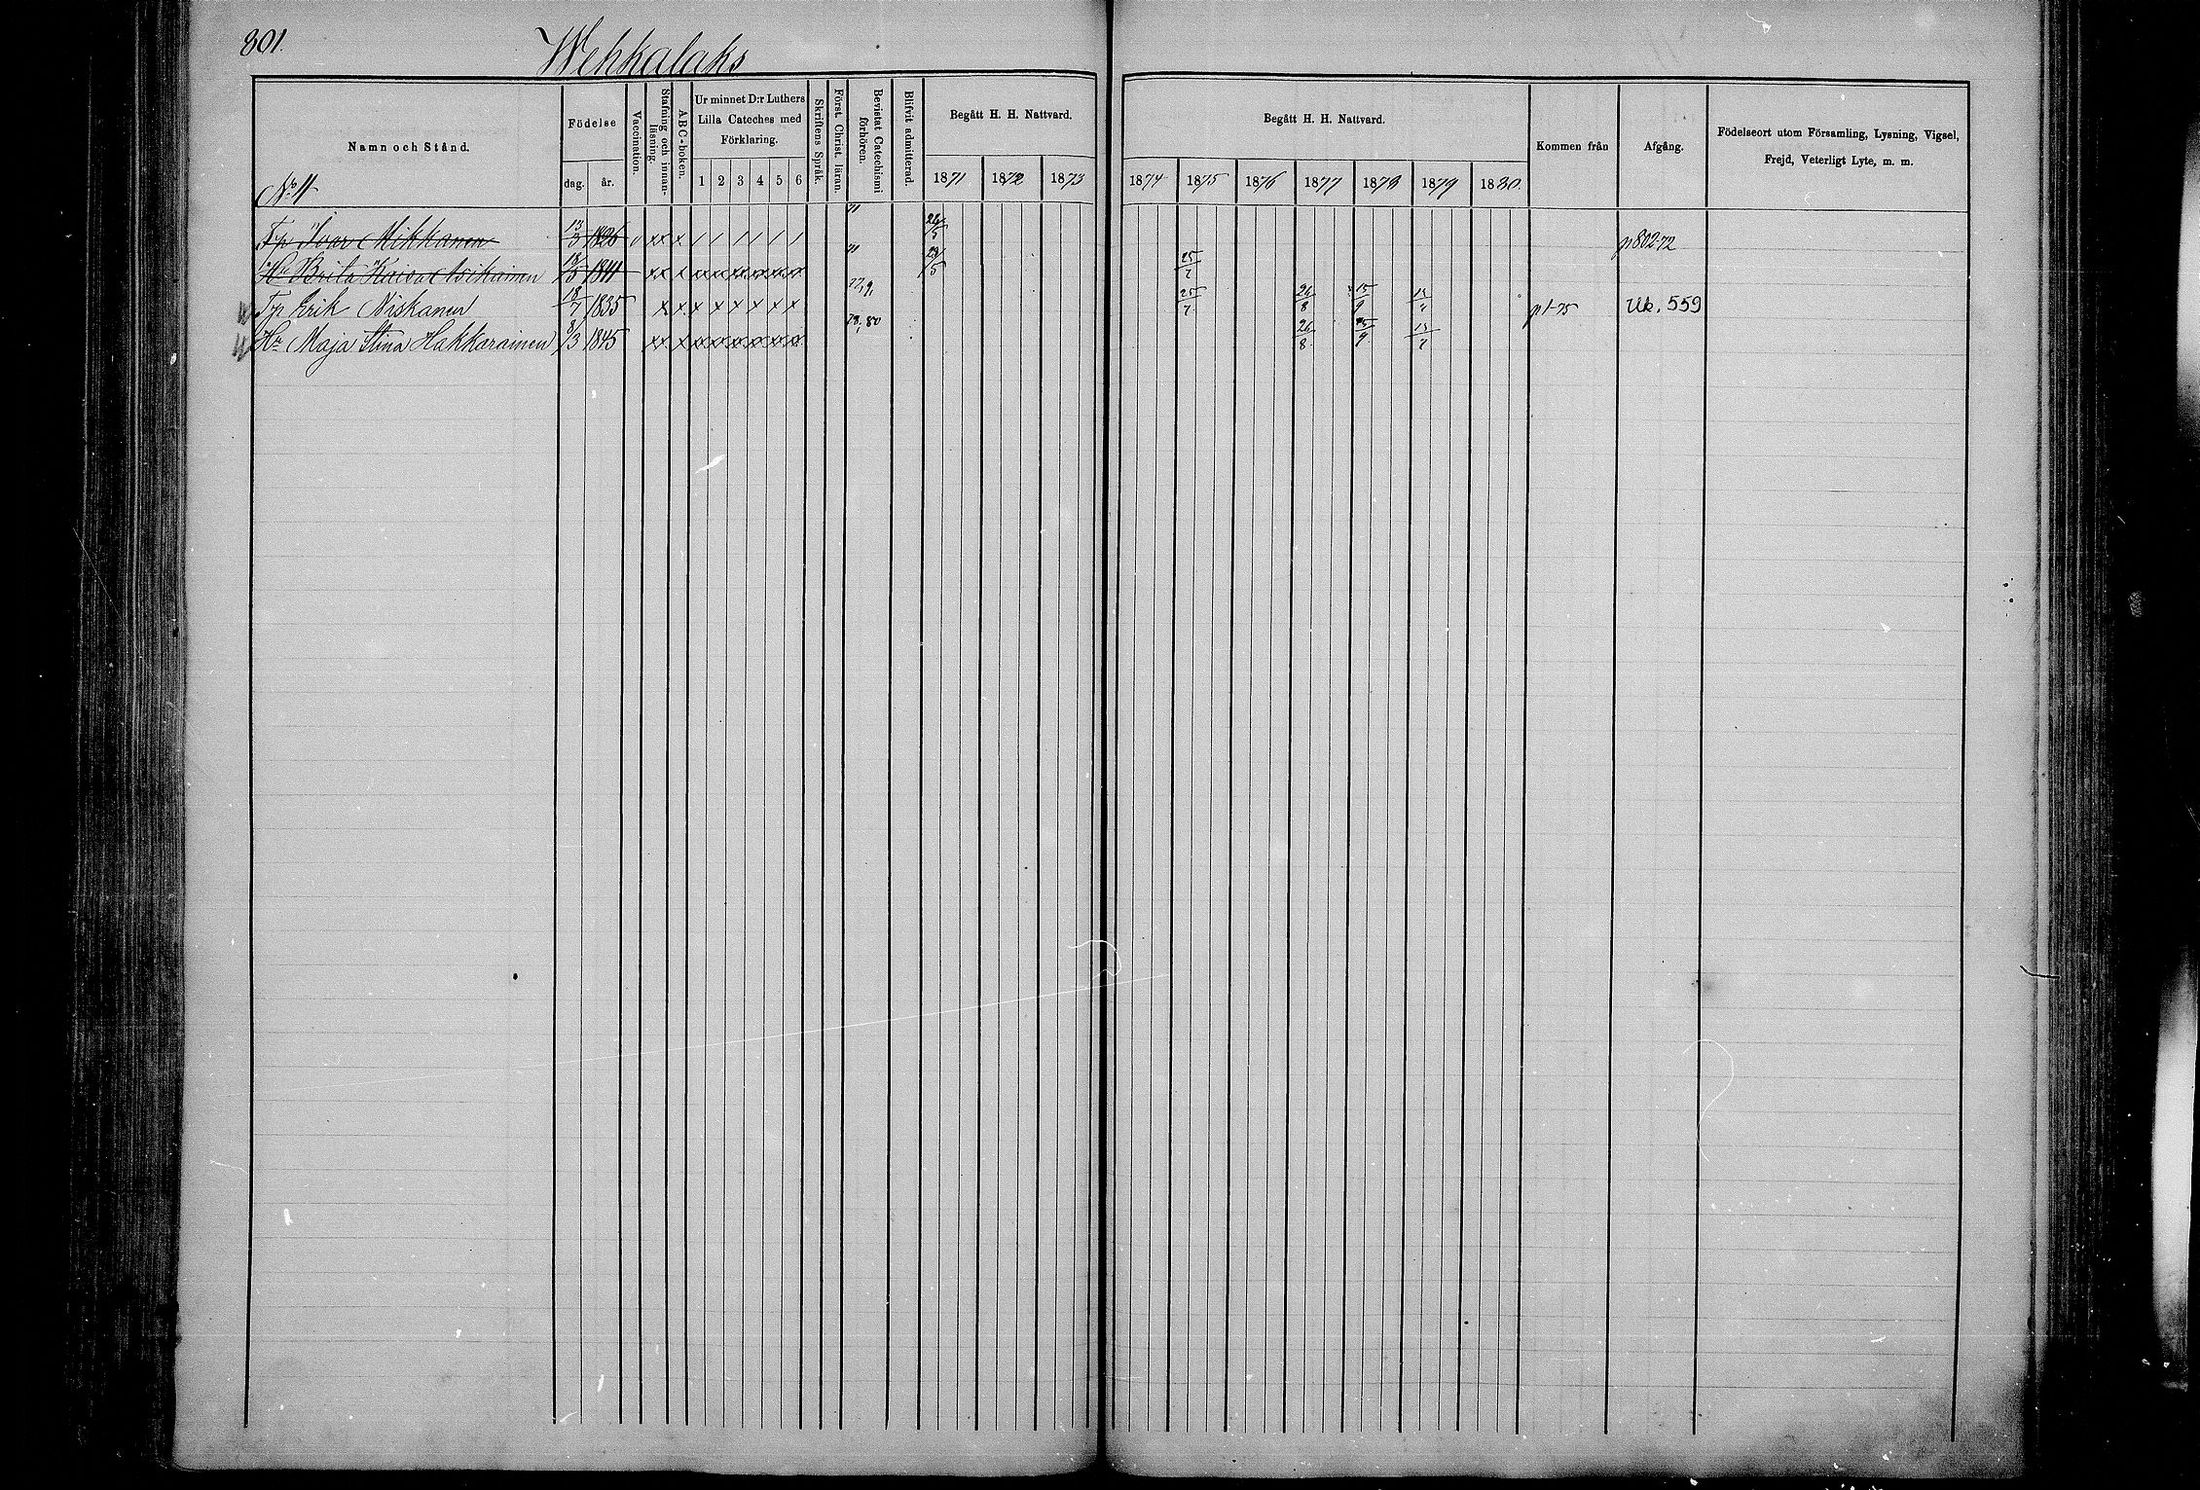 801.
Wehkalaks
Namn och Stånd.
Födelse
dag.
år.
Vaccination.
Stafning och innanläsning.
ABC-boken.
Ur minnet D:r Luthers
Lilla Cateches med
Förklaring.
1 2 3 4 5 6
Skriftens Språk.
Först. Christ. läran.
Bevistat Catechismi förhören.
Blifvit admitterad.
Begått H. H. Nattvard.
1871 1872 1873
Begått H. H. Nattvard.
1874 1875 1876 1877 1878 1879 1880.
Kommen från
Afgång.
Födelseort utom Församling, Lysning, Vigsel,
Frejd, Veterligt Lyte, m. m.
No 4
Tp Ivar Mikkanen 13/3 1826 71 26/5 p 802-72
Hu Brita Kaisa 18/5 1841 71 29/5 25/7
Tp Erik Niskanen 18/7 1835 77,9, 25/7 26/8 15/9 p 1-75 Uk. 559
Hu Maja Stina Hakkarainen 8/3 1845 78, 80 26/8 15/9 13/7